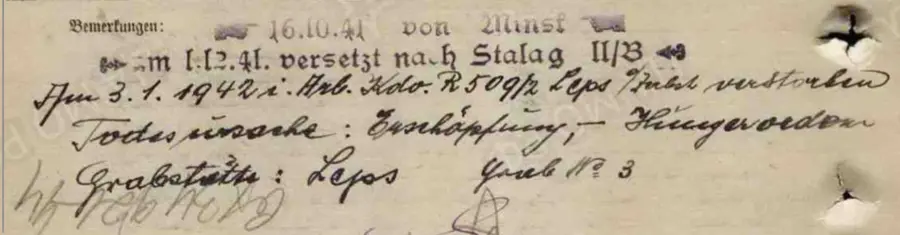 Bemerkungen: 16.10.41 von Minsk
am 1.12.41. versetzt nach Stalag II/B
Am 3.1.1942 i. Arb. Kdo. R 509/2 Leps verstorben
Todesursache: Erschöpfung, – Hungeroedem
Grabstätte: Leps Grab No 3